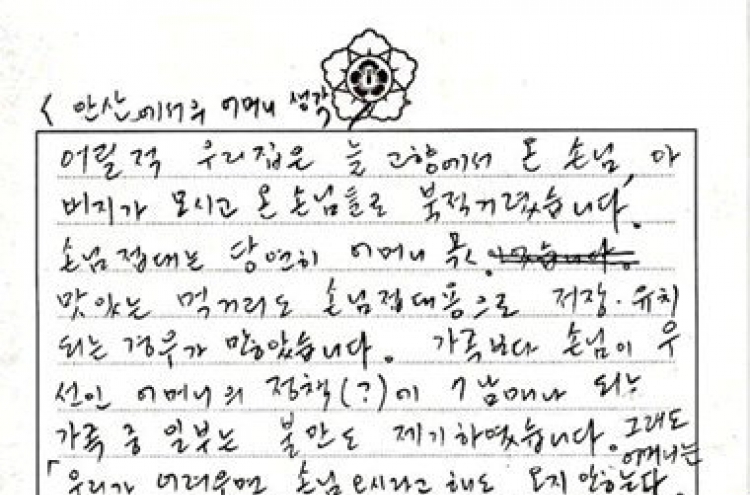 < 안산에서의 어머니 생각
어릴적 우리집은 늘 고향에서 온 손님, 아
버지가 모시고 온 손님들로 북적거렸습니다.
손님접대는 당연히 어머니 몫.
맛있는 먹거리도 손님접대용으로 저장·유치
되는 경우가 많았습니다. 가족보다 손님이 우
선인 어머니의 정책(?)이 7남매나 되는
가족 중 일부는 불만도 제기하였습니다. 그래도
어머니는
「우리가 어려우면 손님 오시라고 해도 오지 않는다.